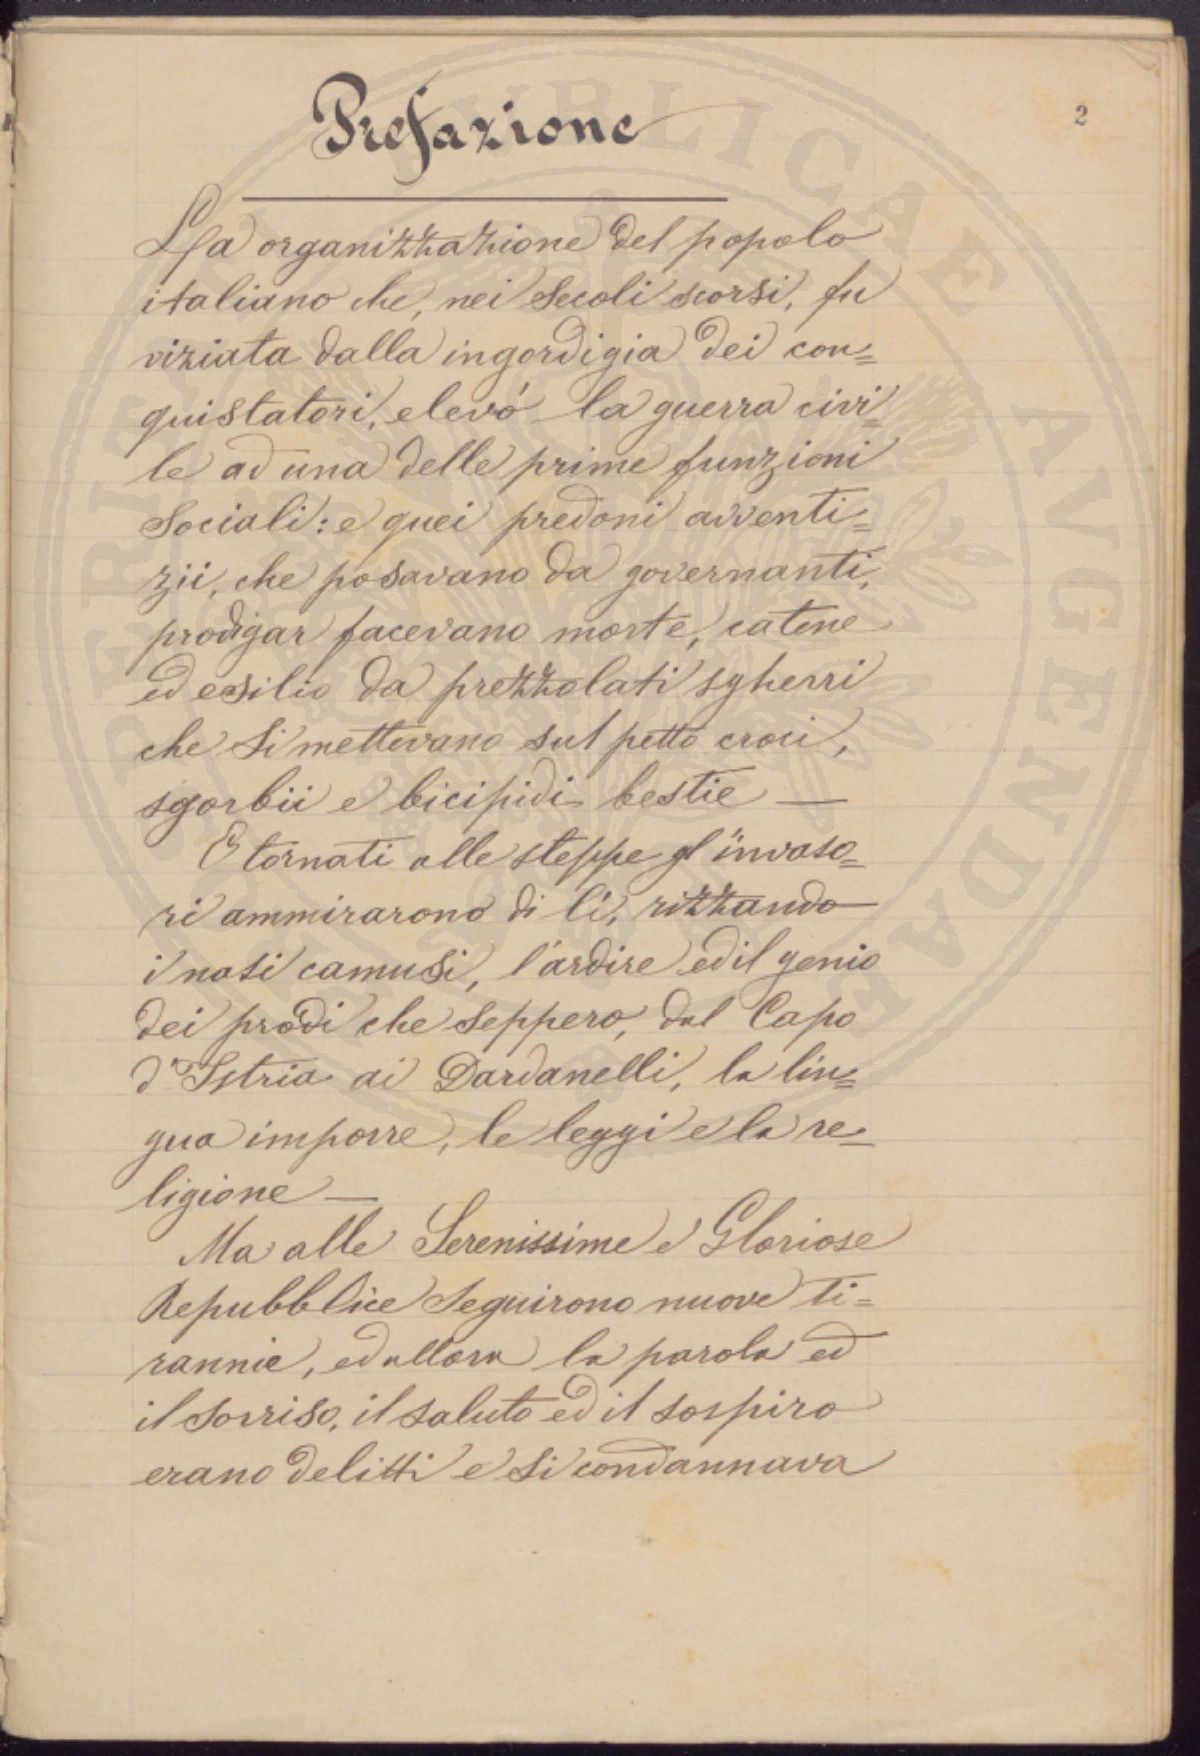 2
Prefazione
La organizzazione del popolo
italiano che, nei secoli scorsi, fu
viziata dalla ingordigia dei con=
quistatori, elevó la guerra civi=
le ad una delle prime funzioni
sociali: e quei predoni avventi=
zii, che posavano da governanti,
prodigar facevano morte, catene
ed esilio da prezzolati sgherri
che si mettevano sul petto croci,
sgorbii e bicipidi bestie —
E tornati alle steppe gl'invaso=
ri ammirarono di lì, rizzando
i nasi camusi, l'ardire ed il genio
dei prodi che seppero, dal Capo
d'Istria ai Dardanelli, la lin=
gua imporre, le leggi e la re=
ligione —
Ma alle Serenissime e Gloriose
Repubblice seguirono nuove ti=
rannie, ed allora la parola ed
il sorriso, il saluto ed il sospiro
erano delitti e si condannava
PVBLICAE AVGENDAE